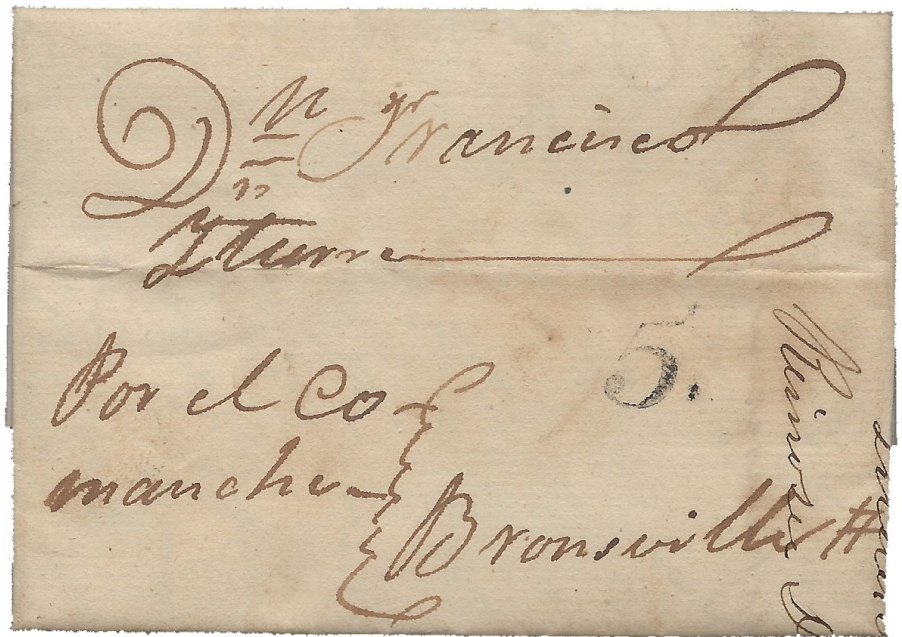 Dn Francisco
Yturre
5.
Por el Co
manche
Bronsville
Reinosa